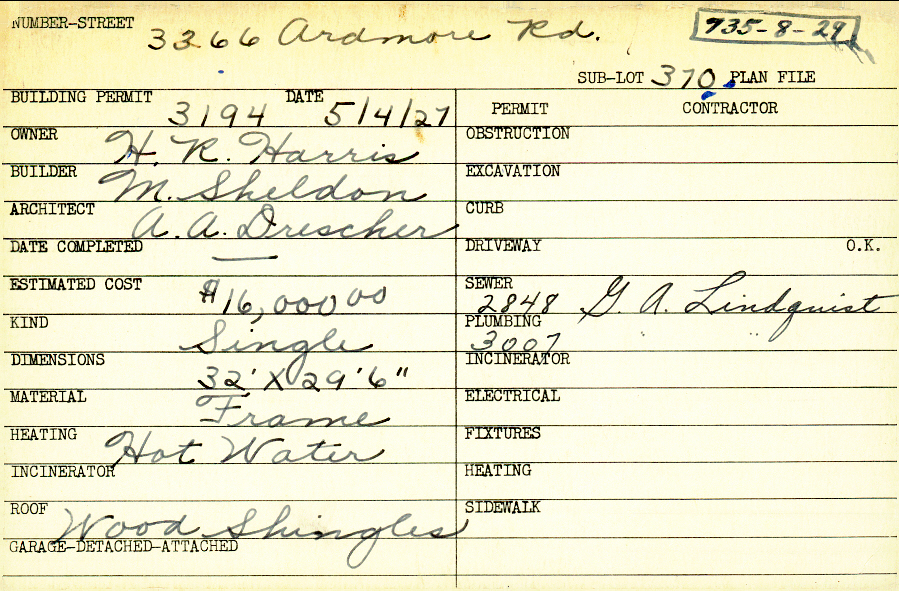 NUMBER-STREET 3266 Ardmore Rd. 735-8-29
SUB-LOT 370 PLAN FILE
BUILDING PERMIT 3194 DATE 5/4/27
PERMIT CONTRACTOR
OWNER H. R. Harris
OBSTRUCTION
BUILDER M. Sheldon
EXCAVATION
ARCHITECT A. A. Drescher
CURB
DATE COMPLETED —
DRIVEWAY O.K.
ESTIMATED COST $16,000 00
SEWER 2848 G. A. Lindquist
KIND Single
PLUMBING 3007 " "
DIMENSIONS 32' X 29'6"
INCINERATOR
MATERIAL Frame
ELECTRICAL
HEATING Hot Water
FIXTURES
INCINERATOR
HEATING
ROOF Wood Shingles
SIDEWALK
GARAGE-DETACHED-ATTACHED